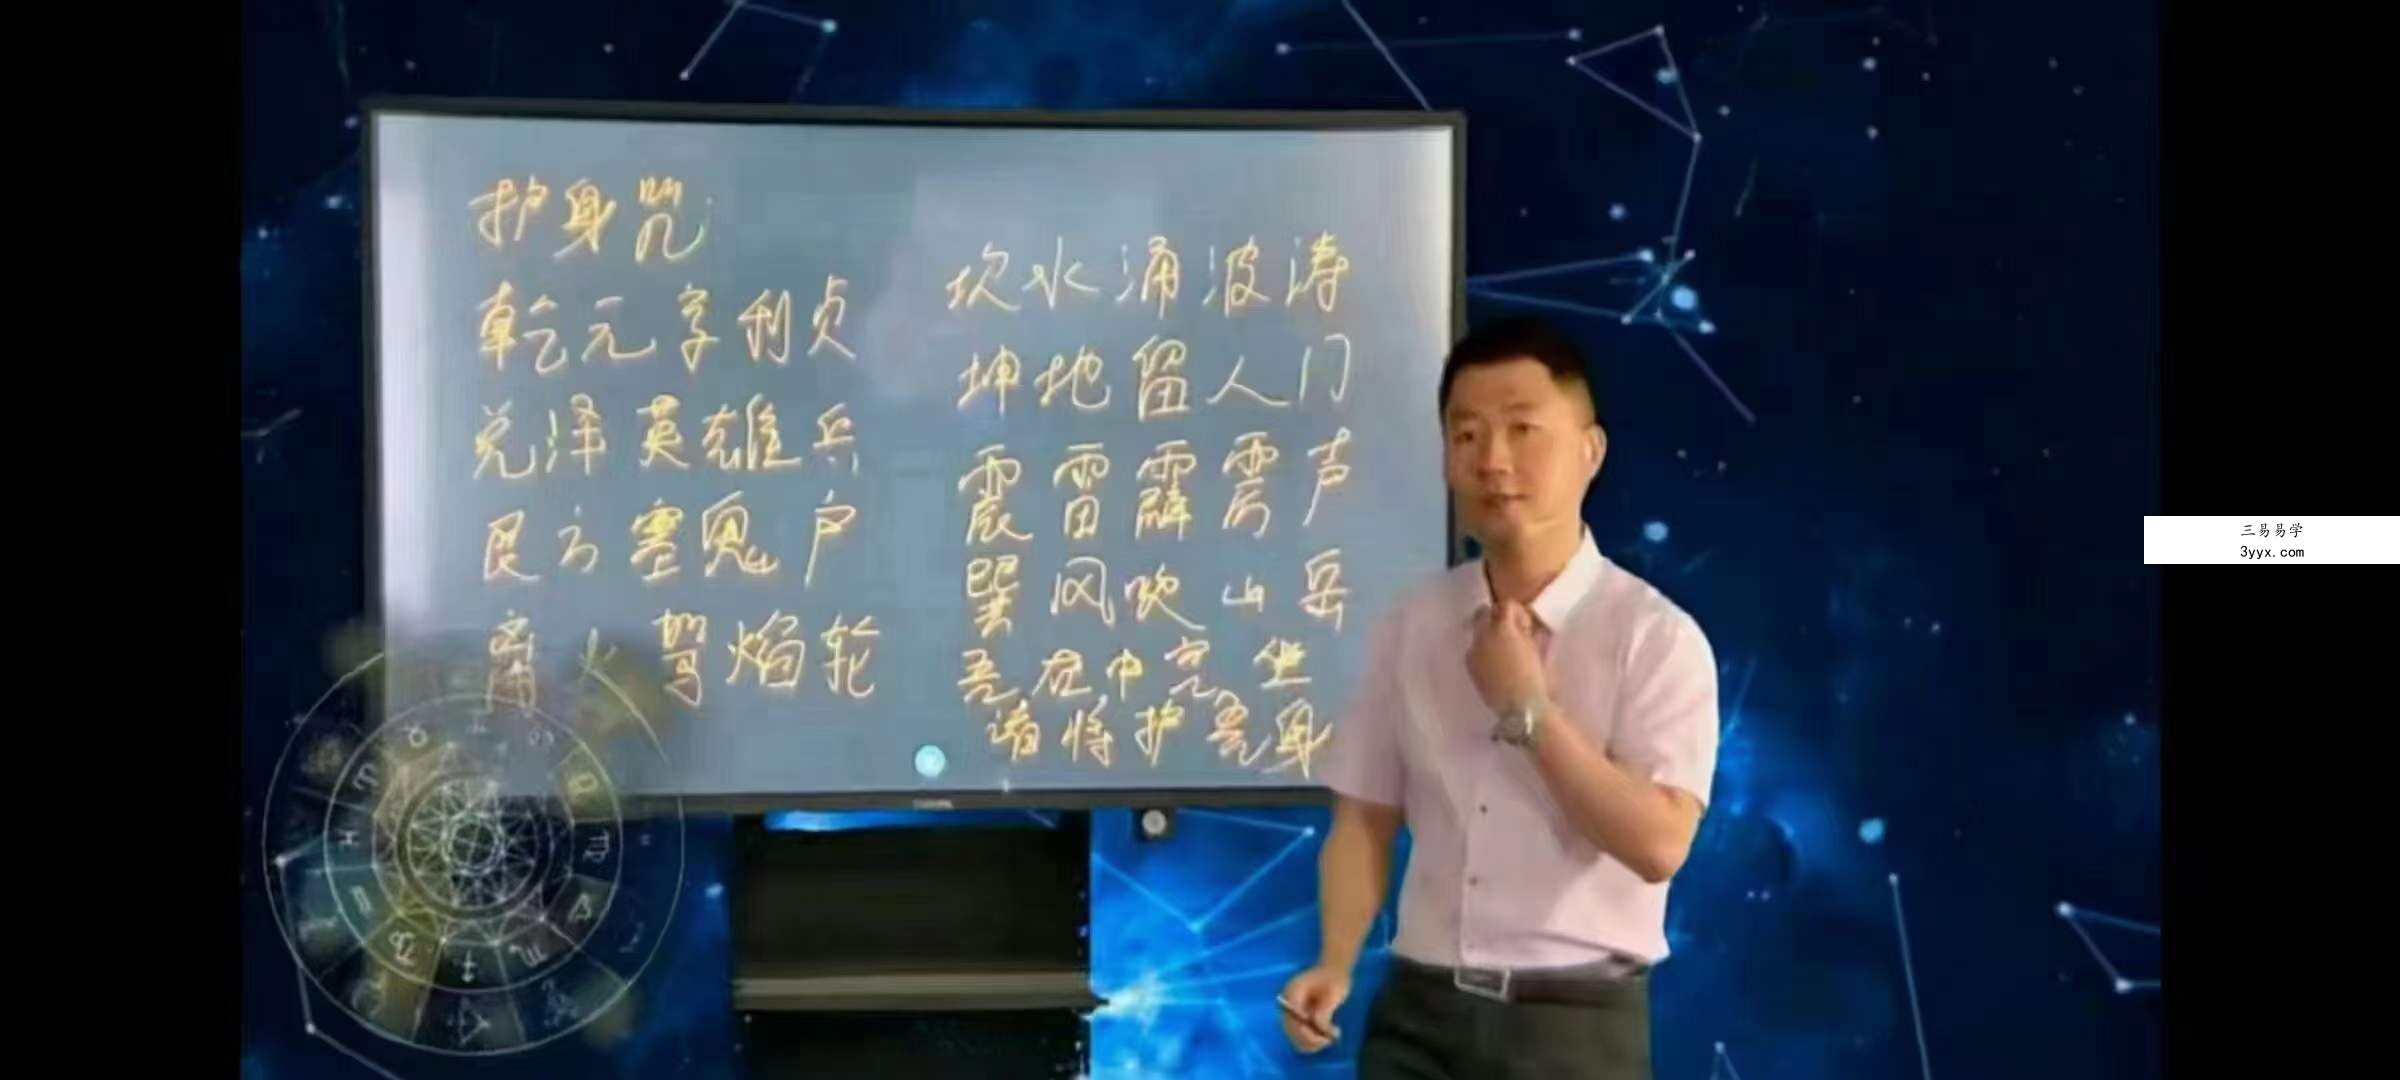 护身咒
乾元亨利贞
兑泽英雄兵
艮方塞鬼户
离火驾焰轮
坎水涌波涛
坤地留人门
震雷霹雳声
巽风吹山岳
吾在中宫坐
诸将护吾身
三易易学
3yyx.com